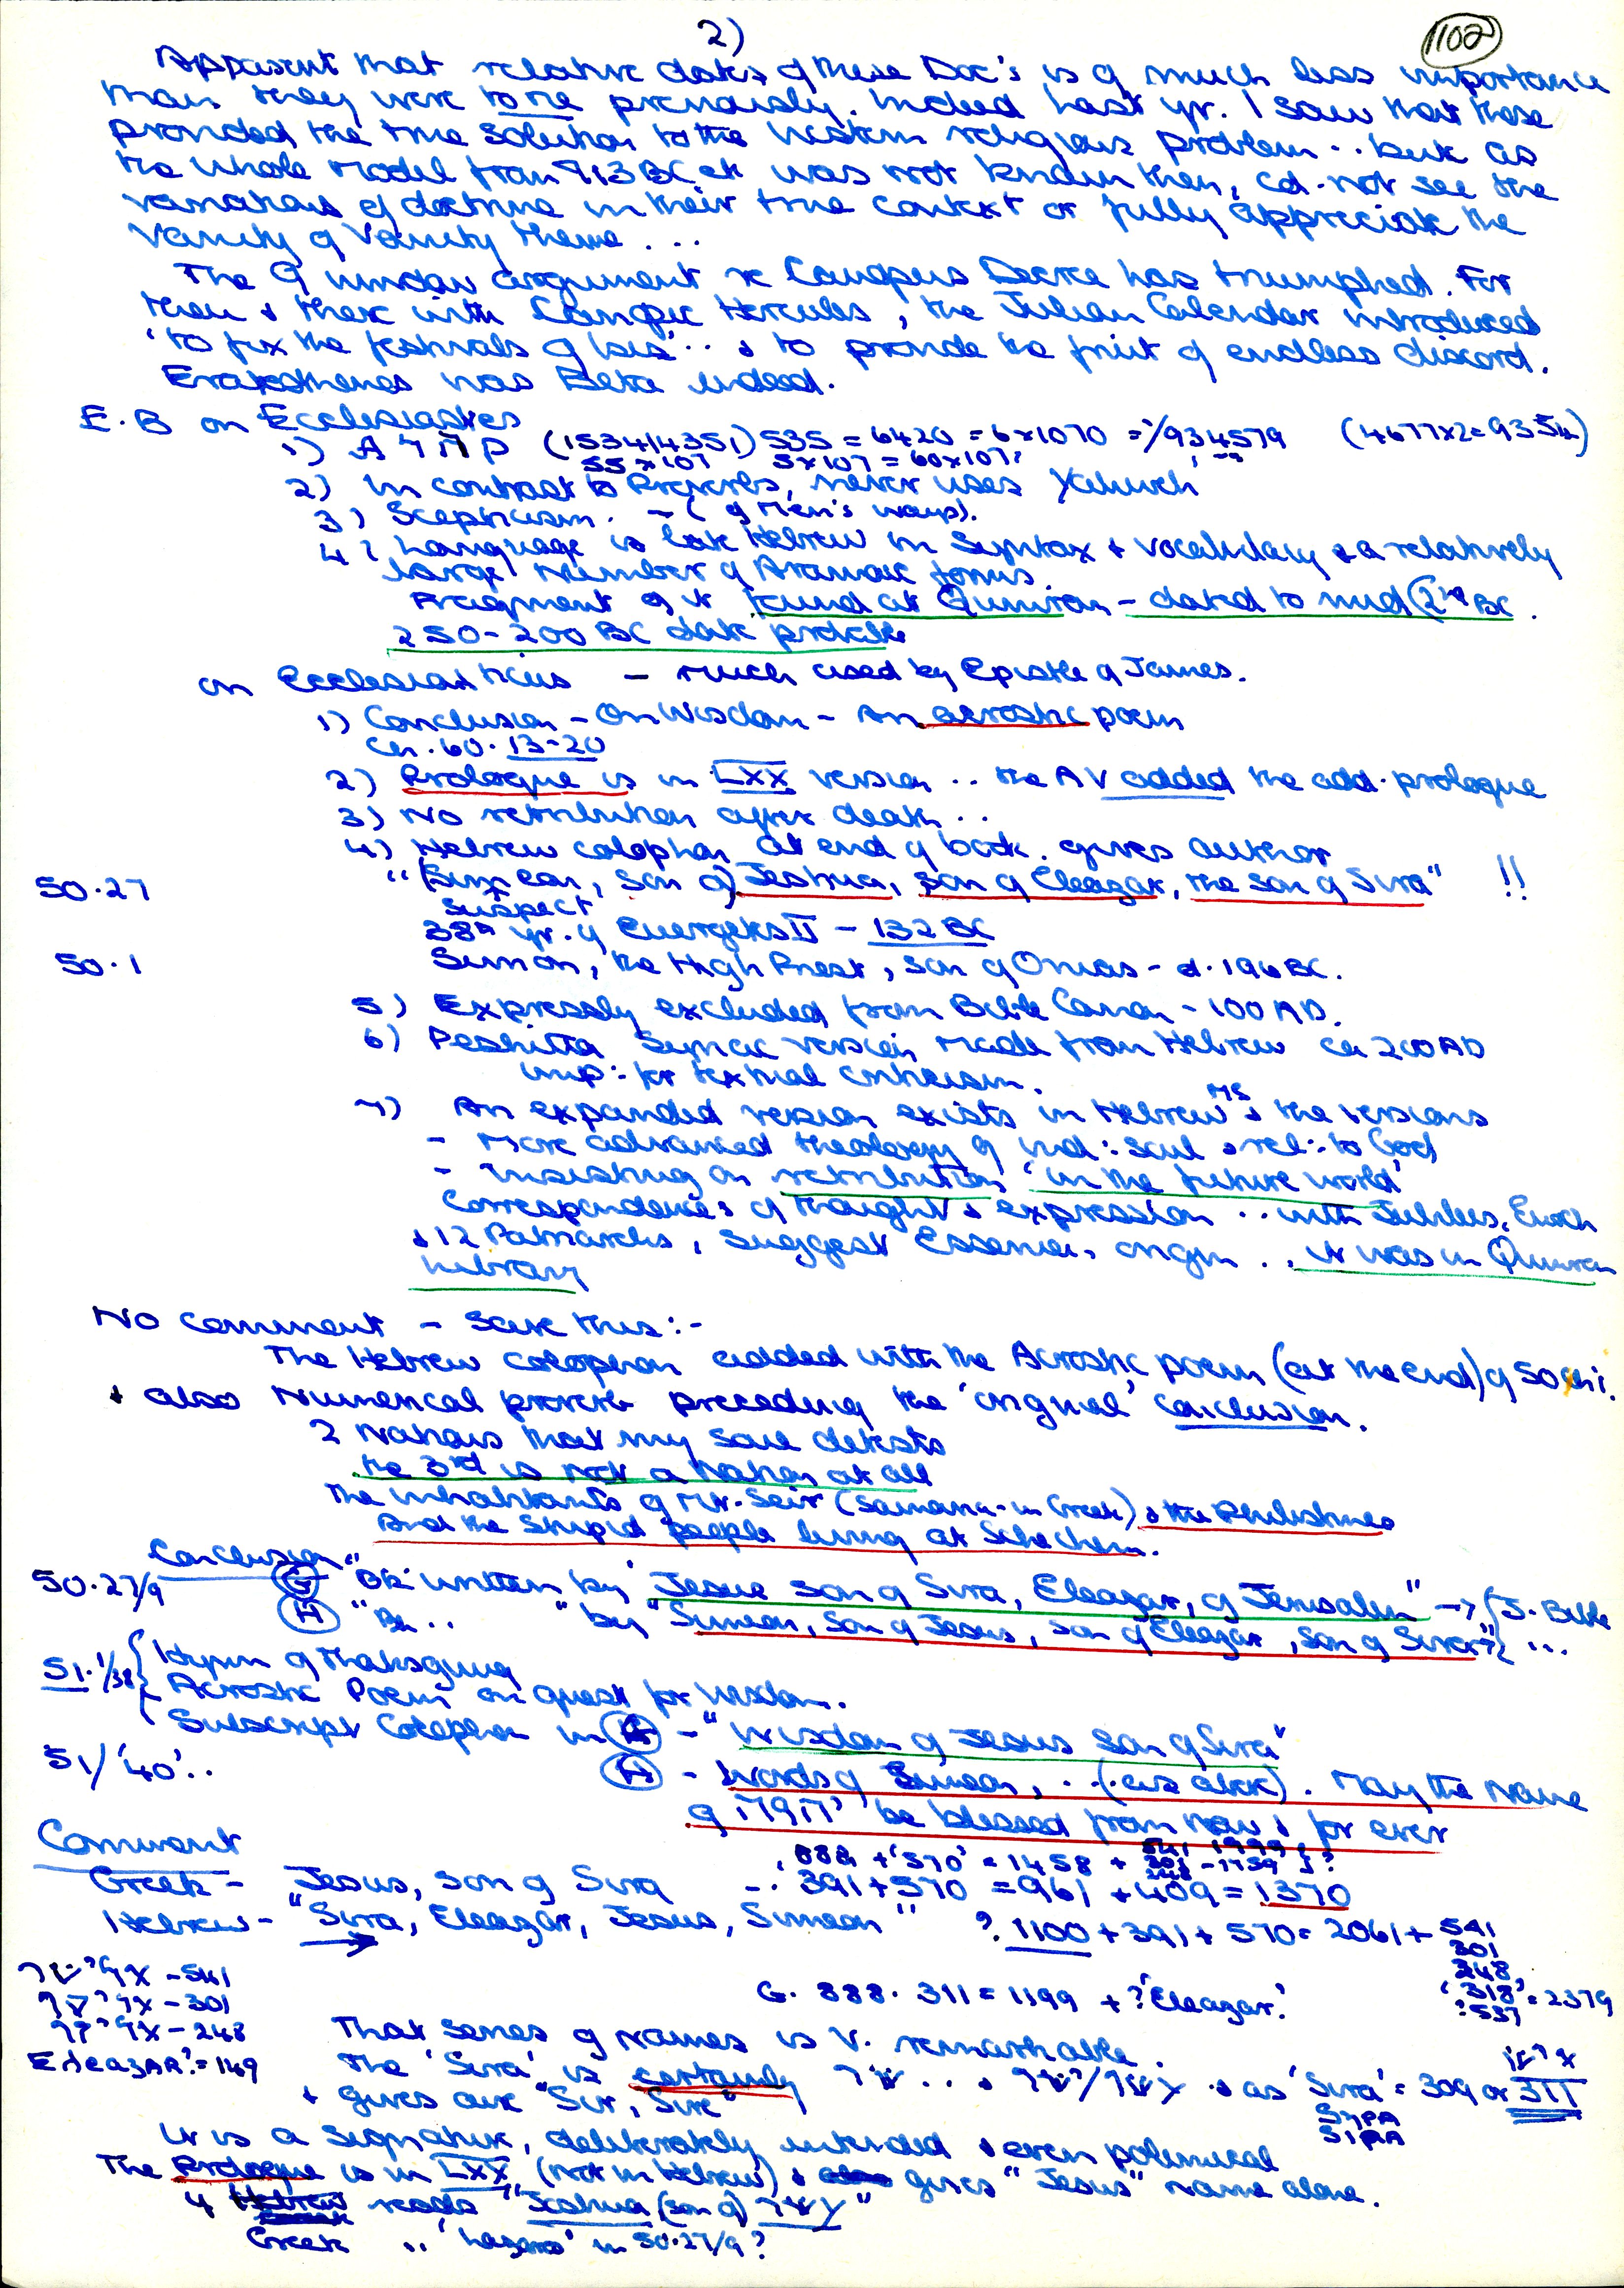 2)
1102
Apparent that relative dates of these Doc's is of much less importance
than they were to me previously. Indeed last yr. I saw that these
provided the true solution to the Western religious problem .. but as
the whole model from 913 BC etc was not known then, cd. not see the
variations of doctrine in their true context or fully appreciate the
Vanity of Vanity theme ...
The argument re Canopus Decree has triumphed. For
then & there with Canopic Hercules, the Julian Calendar introduced
'to fix the festivals of Isis' .. & to provide the fruit of endless discord.
Eratosthenes was Beta indeed.
E.B on Ecclesiastes
1) (1534/4351) 535 = 6420 = 6x1070 = /934579 (4677x2=9354)
55x107 5x107 = 60x107
2) In contrast to Proverbs, never uses Yahweh
3) Scepticism. - (of Men's ways).
4) Language is late Hebrew in Syntax & vocabulary & a relatively
large number of Aramaic forms.
Fragment of it found at Qumran - dated to mid (2nd BC.
250-200 BC date probable
on Ecclesiasticus - Much used by Epistle of James.
1) Conclusion - On Wisdom - An acrostic poem
13-20
2) Prologue is in LXX version .. the AV added the add. prologue
3) No retribution after death ..
4) Hebrew colophon at end of book. gives author
50.27 "(Simeon, son of) Jeshua, son of Eleazar, the son of Sira" !!
suspect
38th yr. of Euergetes II - 132 BC
50.1 Simon, the High Priest, son of Onias - d. 196 BC.
5) Expressly excluded from Bible Canon - 100 AD.
6) Peshitta Syriac version made from Hebrew ca 200 AD
imp: for textual criticism.
7) An expanded version exists in Hebrew MS & the versions
- More advanced theology of ind: soul & rel: to God
- Insisting on retribution 'in the future world'
Correspondences of thought & expression .. with Jubilees, Enoch
& 12 Patriarchs, suggest Essene origin .. it was in Qumran
library
No comment - save this:-
The Hebrew colophon added with the Acrostic poem (at the end) of 50
& also Numerical proverb preceding the 'original' conclusion.
2 Nations that my soul detests
the 3rd is not a Nation at all
The inhabitants of Mt. Seir (Samaria - in Greek) & the Philistines
And the stupid people living at Schechem.
Conclusion
50.27/9 G "Bk written by 'Jesus son of Sira, Eleazar, of Jerusalem" → {J. Bible
H "Bk .. " by "Simeon, son of Jesus, son of Eleazar, son of Sira"} ...
51.1/38 { Hymn of Thanksgiving
Acrostic Poem on quest for Wisdom.
Subscript Colophon in G - "Wisdom of Jesus son of Sira"
51/'40'.. H - Words of Simeon, .. (as above). May the Name
of יהוה be blessed from now & for ever
Comment
888 + '570' = 1458 + 541 301 248 1999 - 1759 }?
Greek - Jesus, son of Sira - 391+570 = 961 + 409 = 1370
Hebrew - "Sira, Eleazar, Jesus, Simeon" ? 1100 + 391 + 570 = 2061 + 541
301
248,
'318' = 2379
?537
G. 888. 311 = 1199 + ? 'Eleazar.'
- 541
- 301
- 248
EleazAR? = 149
That series of names is v. remarkable.
The 'Sira' is certainly ... & as 'Sira' = 309 or 311
& gives our "Sir, Sire"
SιPA
It is a signature, deliberately intended & even polemical
The Prologue is in LXX (not in Hebrew) & gives "Jesus" name alone.
reads "Jeshua (son of)
Greek .. 'Lazaros' in 50.27/9?